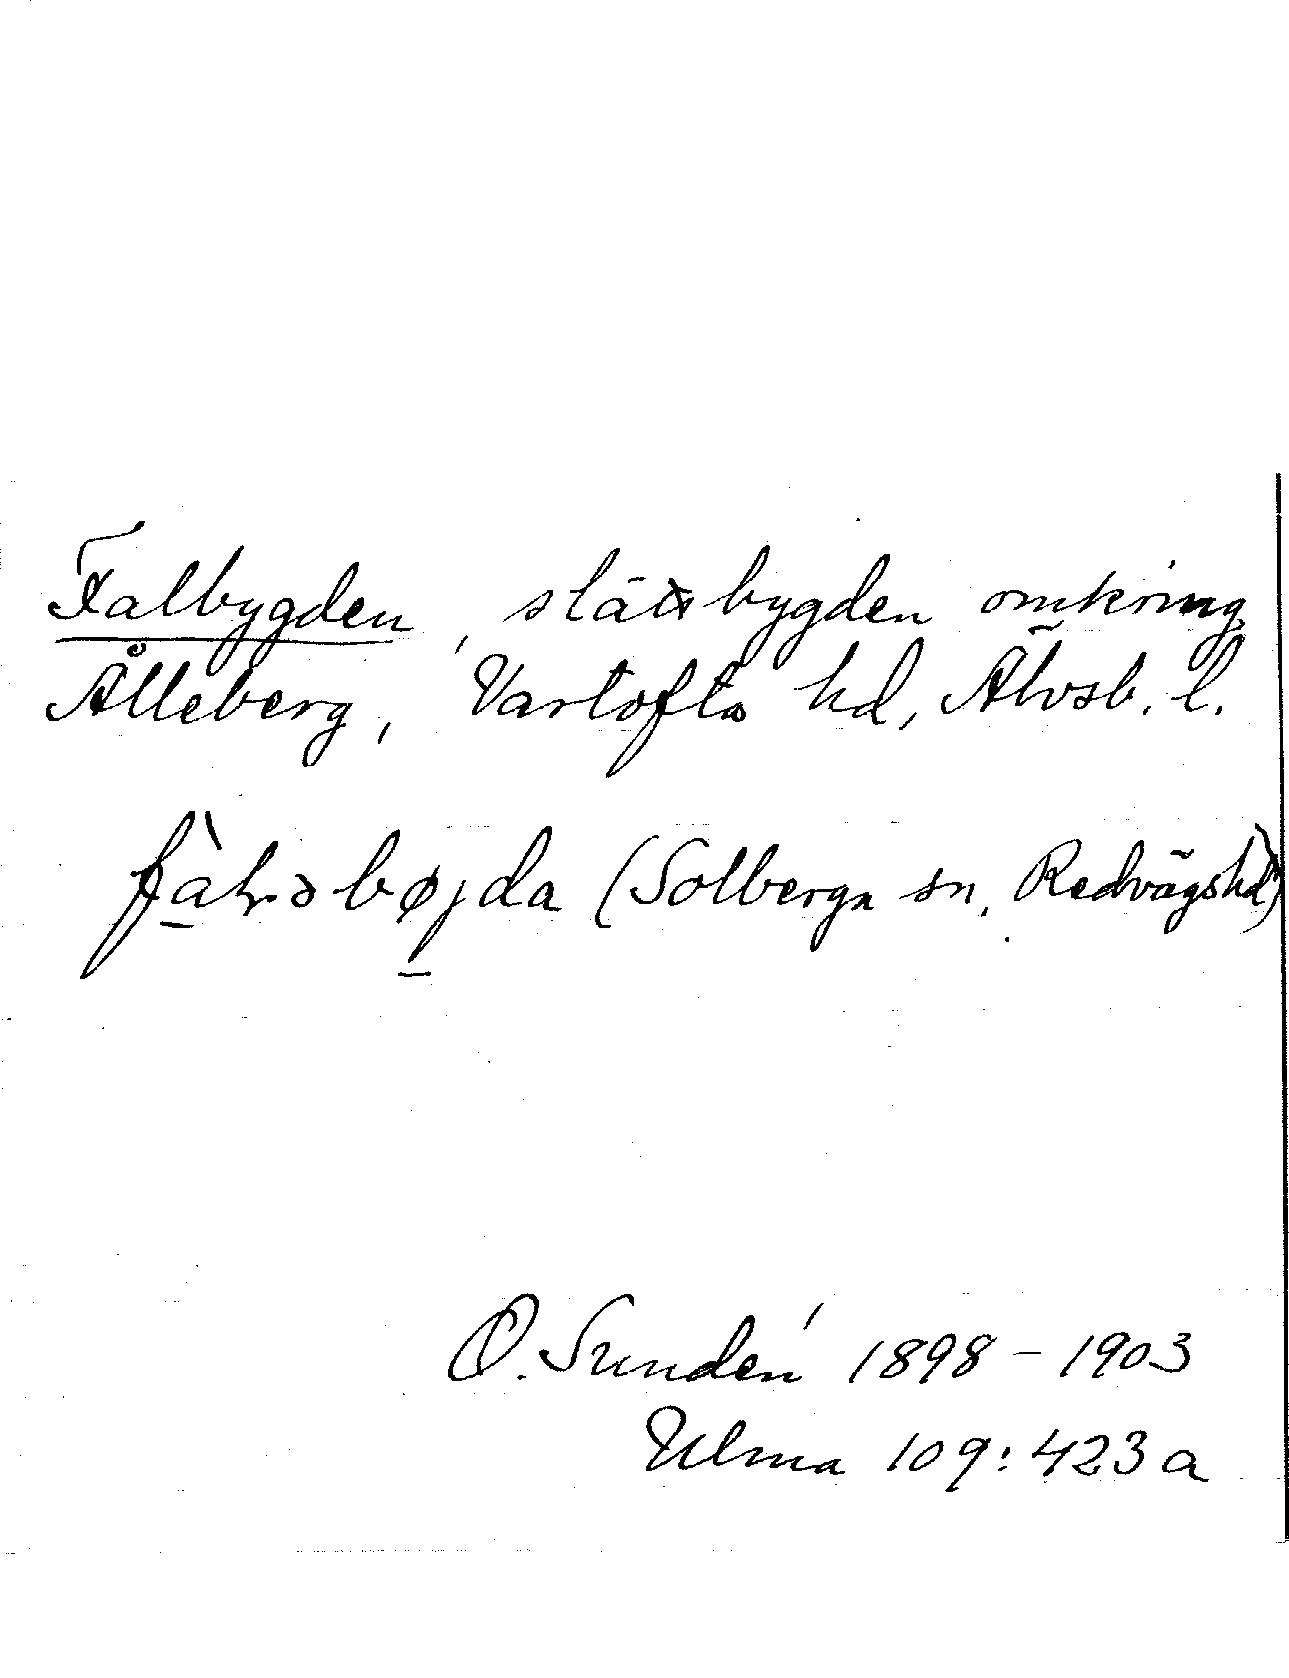 Falbygden, slättbygden omkring
Ålleberg, Vartofta hd, Älvsb. l.
(Solberga sn, Redvägs hd)
O. Sundén 1898 – 1903
Ulma 109:423 a